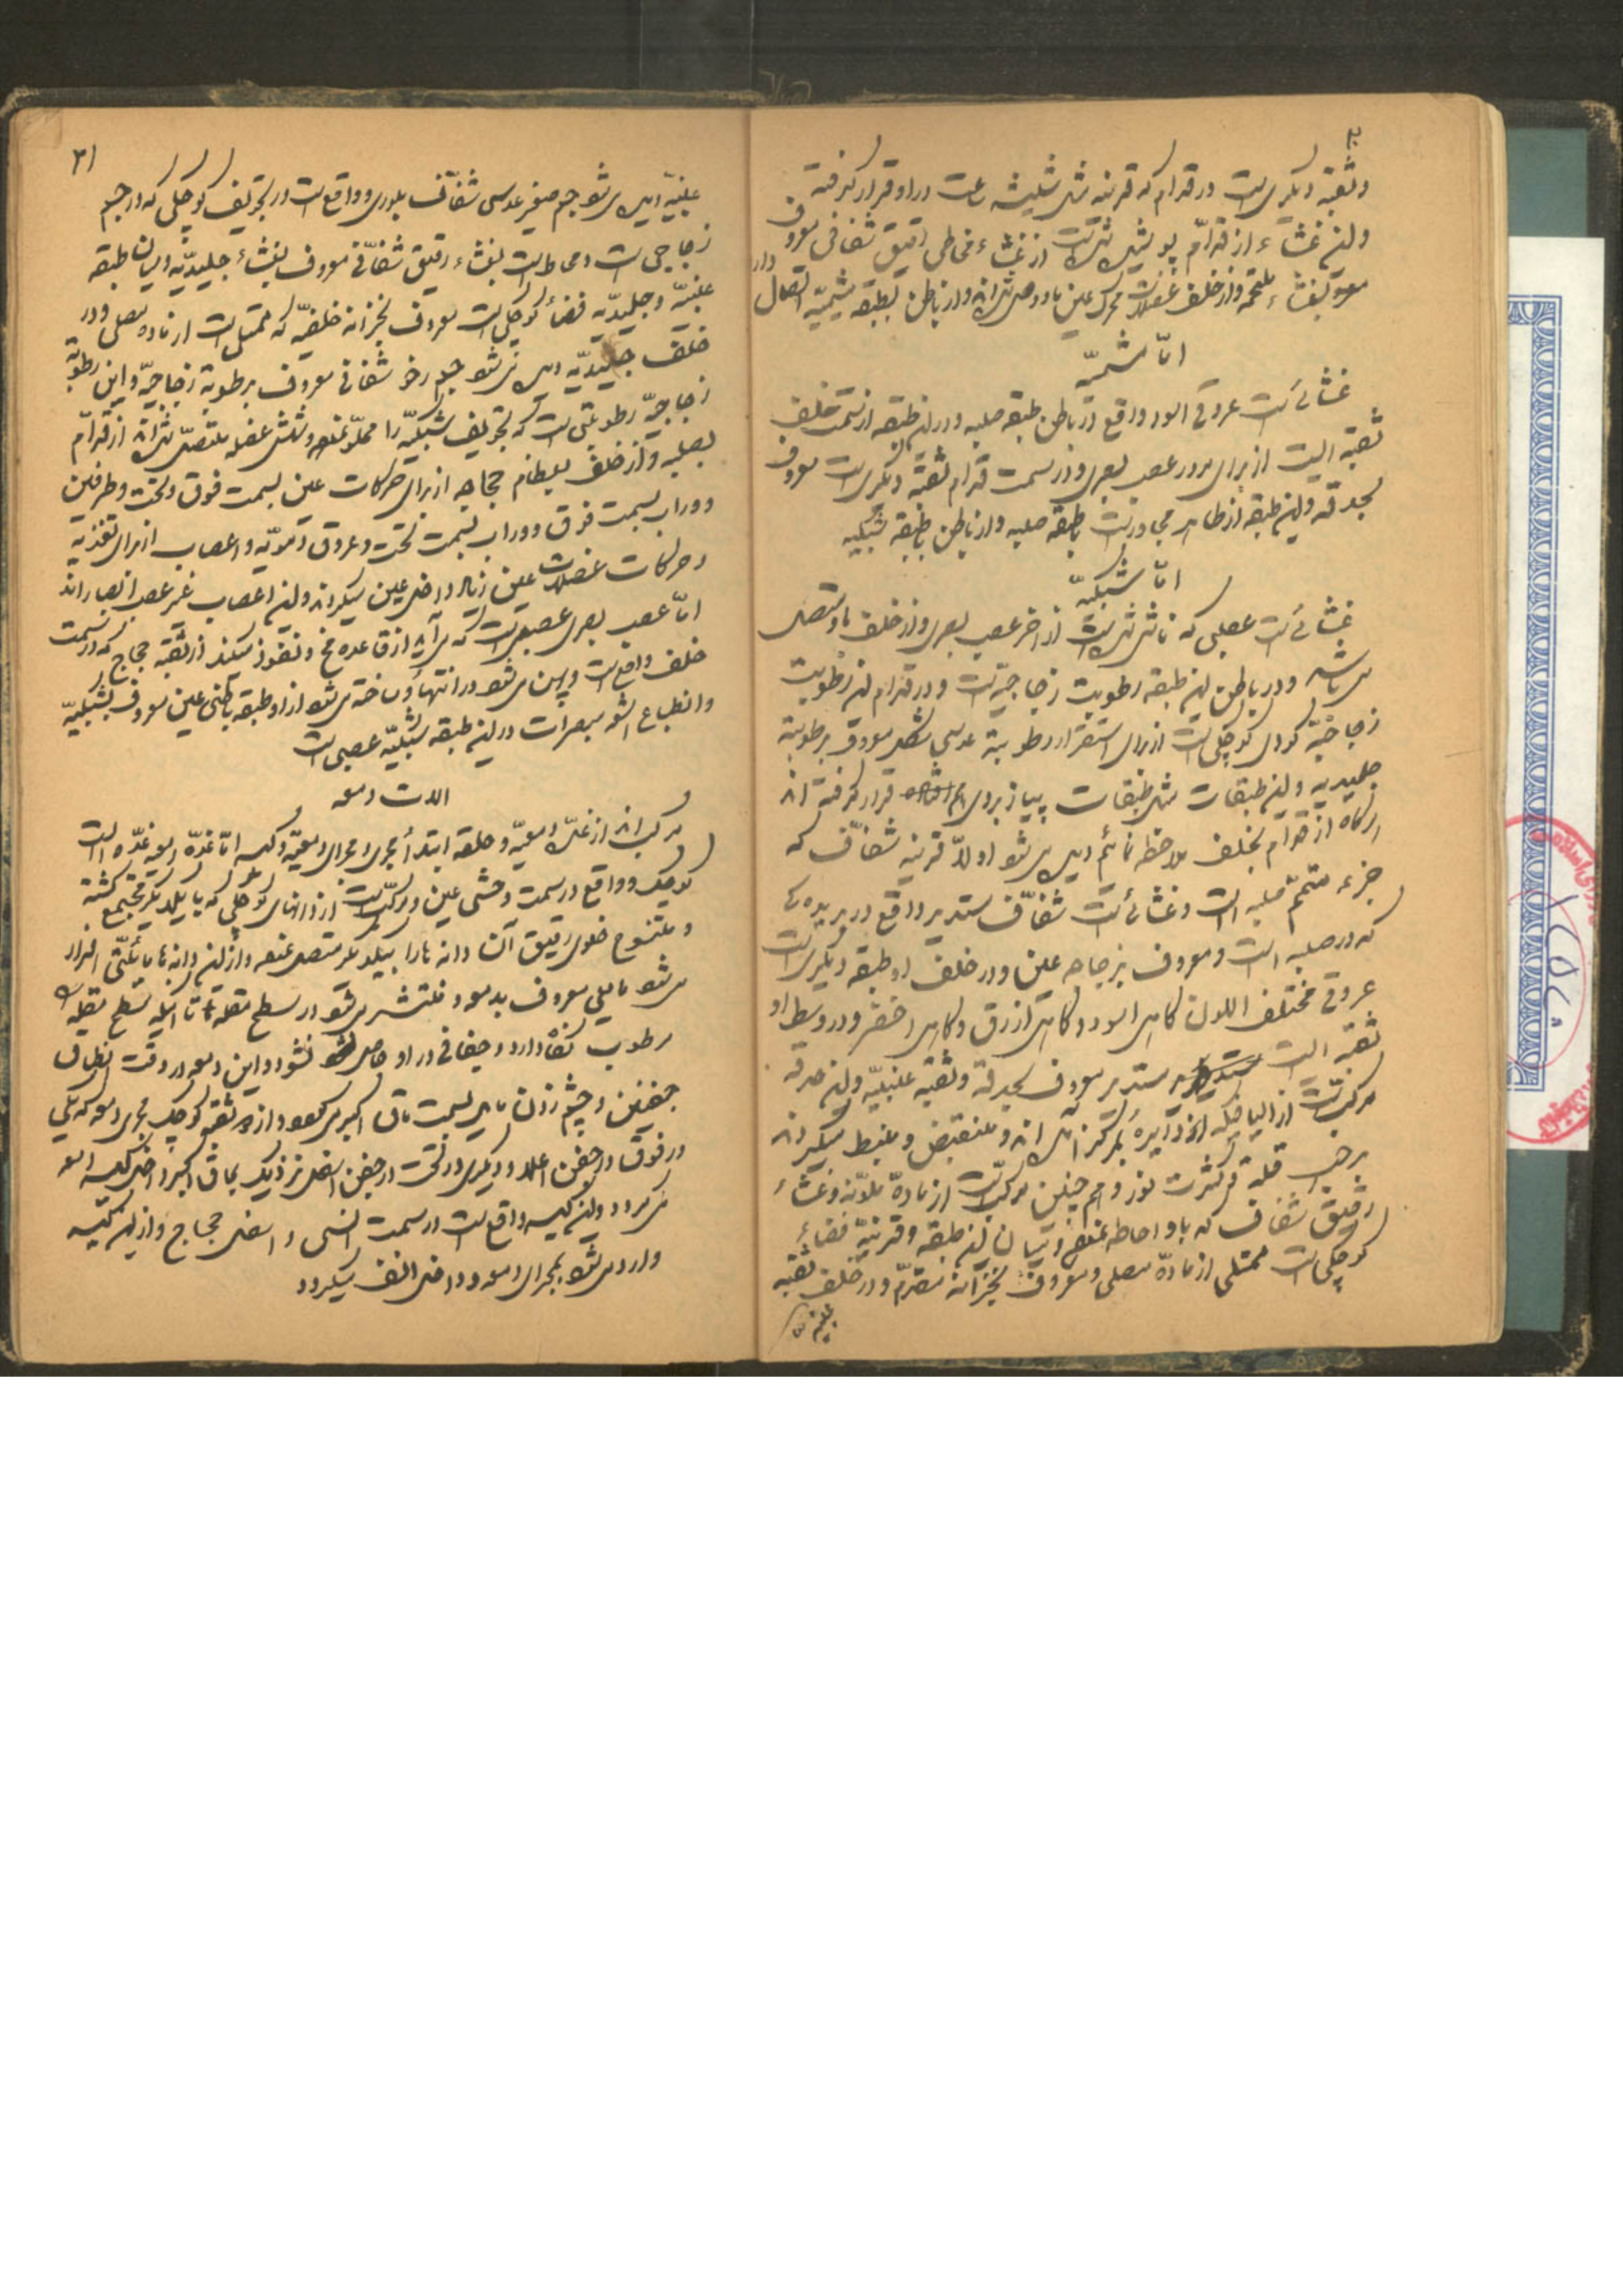 وثقبه دیکری است در قدام که قرنیه مثل شیشه ساعت در او قرار کرفته
واین غشاء از قدام پوشیده شده است از غشاء مخاطی رقیق شفافی معروف
بغشاء ملتحمه واز خلف عضلات محرک عین باو وصل شده اند واز باطن بطبقه مشیمیه اتصال دارد
امّا مشمیّه
غشائی است عروقی اسود واقع در باطن طبقه صلبیه ودر این طبقه از سمت خلف
ثقبه ایست از برای مرور عصب بصری ودر سمت قدام ثقبه دیکری است معروف
بحدقه واین طبقه از ظاهر مجاور است بطبقه صلبیه واز باطن بطبقه شبکیه
امّا شبکیّه
غشائی است عصبی که ناشی شده است از اخر عصب بصری واز خلف باو متصل
می باشد ودر باطن این طبقه رطوبت زجاجیّه است ودر قدام این رطوبت
زجاجیّه کودی کوچکی است از برای استقرار رطوبة عدسی شکل معروف برطوبة
جلیدیه واین طبقات مثل طبقات پیاز بروی هم قرار کرفته اند
هرکاه از قدام بخلف ملاحظه نمائیم دیده می شود اولاً قرنیه شفاف که
جزء متمّم صلبیه است وغشائیست شفّاف مستدیر واقع در بریده کی
که در صلبیه است ومعروف بزجاجه عین ودر خلف او طبقه دیکری است
عروقی مختلف اللون کاهی اسود وکاهی ازرق وکاهی اخضر ودر وسط او
ثقبه ایست مستدیر معروف بحدقة وثقبه عنبیّه واین حدقه
مرکب است از الیافیکه از دایره بمرکز آمده اند ومنقبض ومنبسط میکردند
برحسب قلة وکثرت نور وهم چنین مرکب است از مادة ملوّنه وغشاء
رقیق شفاف که باو احاطه نموده ومیان این طبقه وقرنیّه فضاء
کوچکی است ممتلی از مادّة مصلی ومعروف بخزانه مقدّم ودر خلف ثقبه
عنبیّه
۳۱
عنبیّه دیده می شود جسم صغیر عدسی شفّاف بلوری وواقع است در تجویف کوچکی که در جسم
زجاجی است ومحاط است بغشاء رقیق شفّافی معروف بغشاء جلیدیّه ومیان طبقه
عنبیّه وجلیدیّه فضاء کوچکی است معروف بخزانه خلفیّه که ممتلی است از ماده مصلی ودر
خلف جلیدیّه دیده می شود جسم رخو شفافی معروف برطوبة زجاجیّه واین رطوبة
زجاجیّه رطوبتی است که تجویف شبکیّه را مملّو نموده وشش عضله متصل شده اند از قدام
بصلبیه واز خلف بعظام حجاجیه از برای حرکات عین بسمت فوق وتحت وطرفین
ووراب بسمت فوق ووراب بسمت تحت وعروق دمویّه واعصاب از برای تغذیه
وحرکات عضلات عین زیاد داخل عین میکردند واین اعصاب غیر عصب ابصار اند
امّا عصب بصری عصبی است که می آید از قاعده مخ ونفوذ میکند از ثقبه حجاج که در سمت
خلف واقع است وپهن می شود در انتهاء وساخته می شود از او طبقه باطنی عین معروف بشبکیّه
وانطباع اشعه مبصرات در این طبقه شبکیّه عصبی است
الات دمعه
مرکب اند از غدّه دمعیّه وحلقه ابتداء مجری ومجرای دمعیّه وکیسه امّا غدّه دمعیه غدّه است
کوچک وواقع در سمت وحشی عین ومرکب است از دانهای کوچکی که با یکدیکر مجتمع کشته
ومنسوج خلوی رقیق آن دانه ها را بیکدیکر متصل نموده واز این دانه ها مایعّی افراز
می شود مایعی معروف بدمعه ومنتشر می شود در سطح مقله تا اینکه سطح مقله را
مرطوب نکاه دارد وجفافی در او حاصل نشود واین دمعه در وقت انطباق
جفنین وچشم زدن مایل بسمت ماق اکبر می شود واز دو ثقبه کوچک مجری دمعه که یکی
در فوق در جفن اعلی ودیکری در تحت در جفن اسفل نزدیک بماق اکبر داخل کیسه دمعه
می کردد واین کیسه واقع است در سمت انسی واسفل حجاج واز این کیسه
وارد می شود بمجرای دمعه وداخل انف میکردد